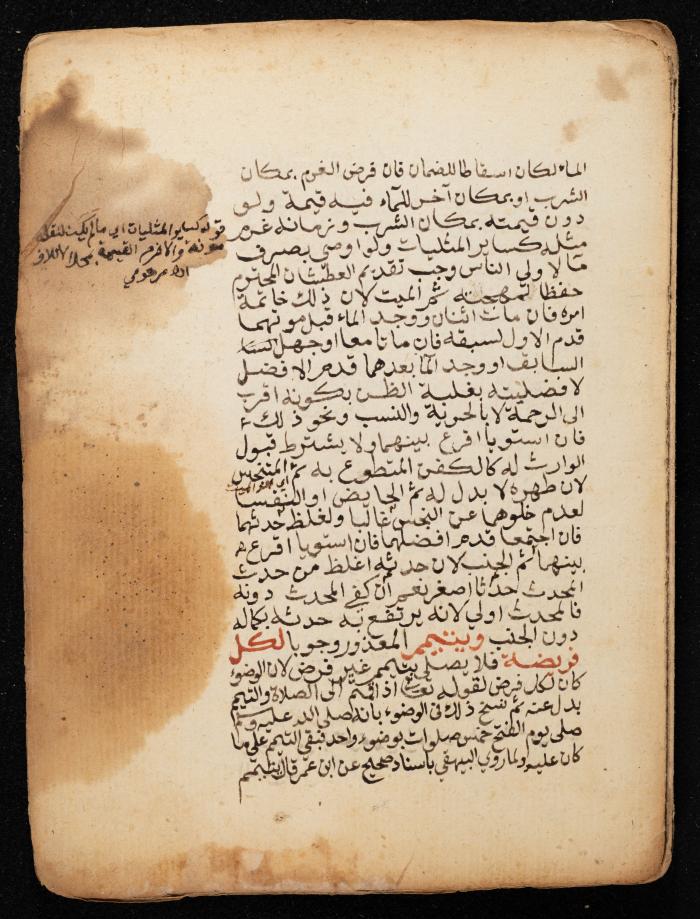 الماء لكان اسقاطا للضمان فان فرض الغرم بمكان
الشرب او بمكان آخر للماء فيه قيمة ولو
دون قيمته بمكان الشرب وزمانه غرم
مثله كساير المثليات ولو اوصى بصرف
ما لاولى الناس وجب تقديم العطشان المحترم
حفظا لمهجته ثم الميت لان ذلك خاتمة
امره فان مات اثنان ووجد الماء قبل موتهما
قدم الاول لسبقه فان ماتا معا او جهل
السابق او وجد الما بعدهما قدم الافضل
لافضليته بغلبة الظن بكونه اقرب
الى الرحمة لا بالحرية والنسب ونحو ذلك
فان استويا اقرع بينهما ولا يشترط قبول
الوارث له كالكفن المتطوع به ثم المتنجس
لان طهره لا بدل له ثم الحايض او النفسا
لعدم خلوهما عن النجس غالبا ولغلظ حدثهما
فان اجتمعا قدم افضلهما فان استويا اقرع
بينهما ثم الجنب لان حدثه اغلظ من حدث
المحدث حدثا اصغر نعم ان كفى المحدث دونه
فالمحدث اولى لانه يرتفع به حدثه بكماله
دون الجنب ويتيمم المعذور وجوبا لكل
فريضة فلا يصلي بتيمم غير فرض لان الوضوء
كان لكل فرض لقوله تعالى اذا قمتم الى الصلاة والتيمم
بدل عنه ثم نسخ ذلك في الوضوء بانه صلى الله عليه وسلم
صلى يوم الفتح خمس صلوات بوضوء واحد فبقي التيمم على ما
كان عليه ولما روى البيهقي باسناد صحيح عن ابن عمر قال يتيمم
قوله كساير المثليات اي ما لم يكن لنقله
مونة والا فغرم القيمة بمحل الاتلاف